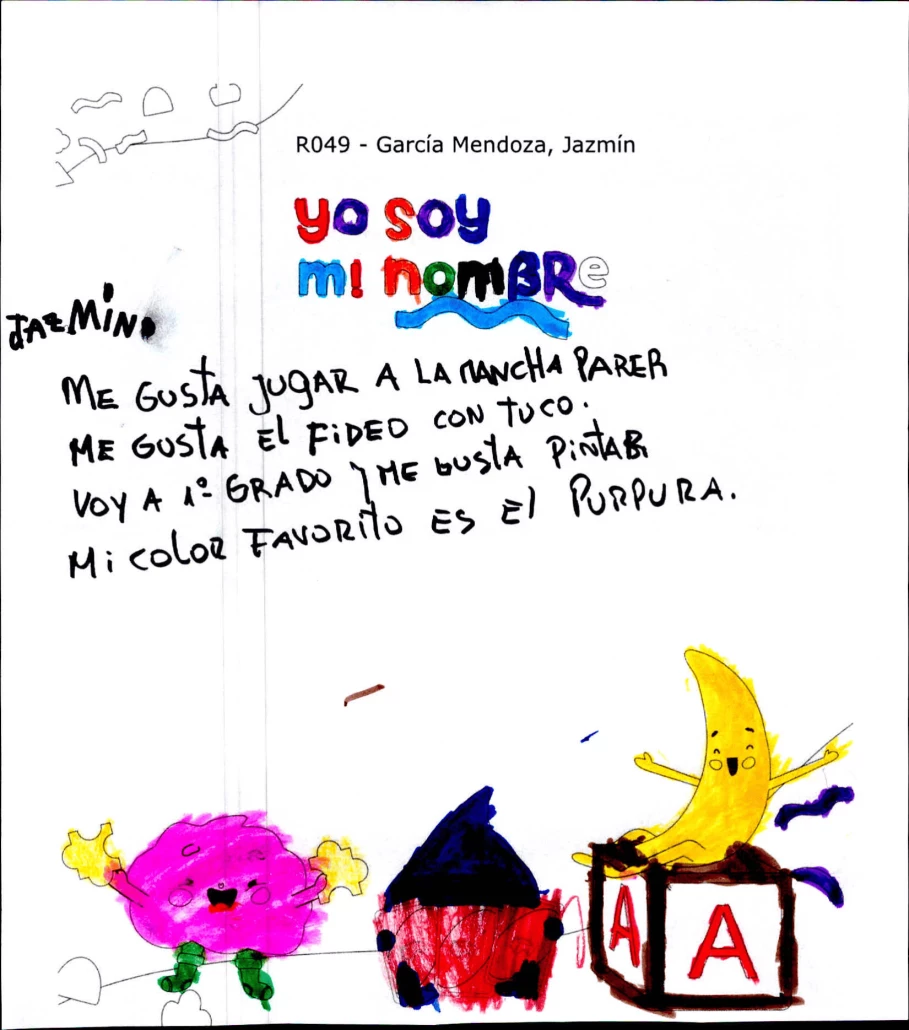 R049 - García Mendoza, Jazmín
yo soy
mi nomBRe
JAZMíN
ME GUSTA JUGAR A LA MANCHA PARER
ME GUSTA El FiDEO CON TUCO.
VOY A 1º GRADO Y ME GUSTA PiNTAR
Mi COLOR FAVORITO ES El PURPURA.
A A